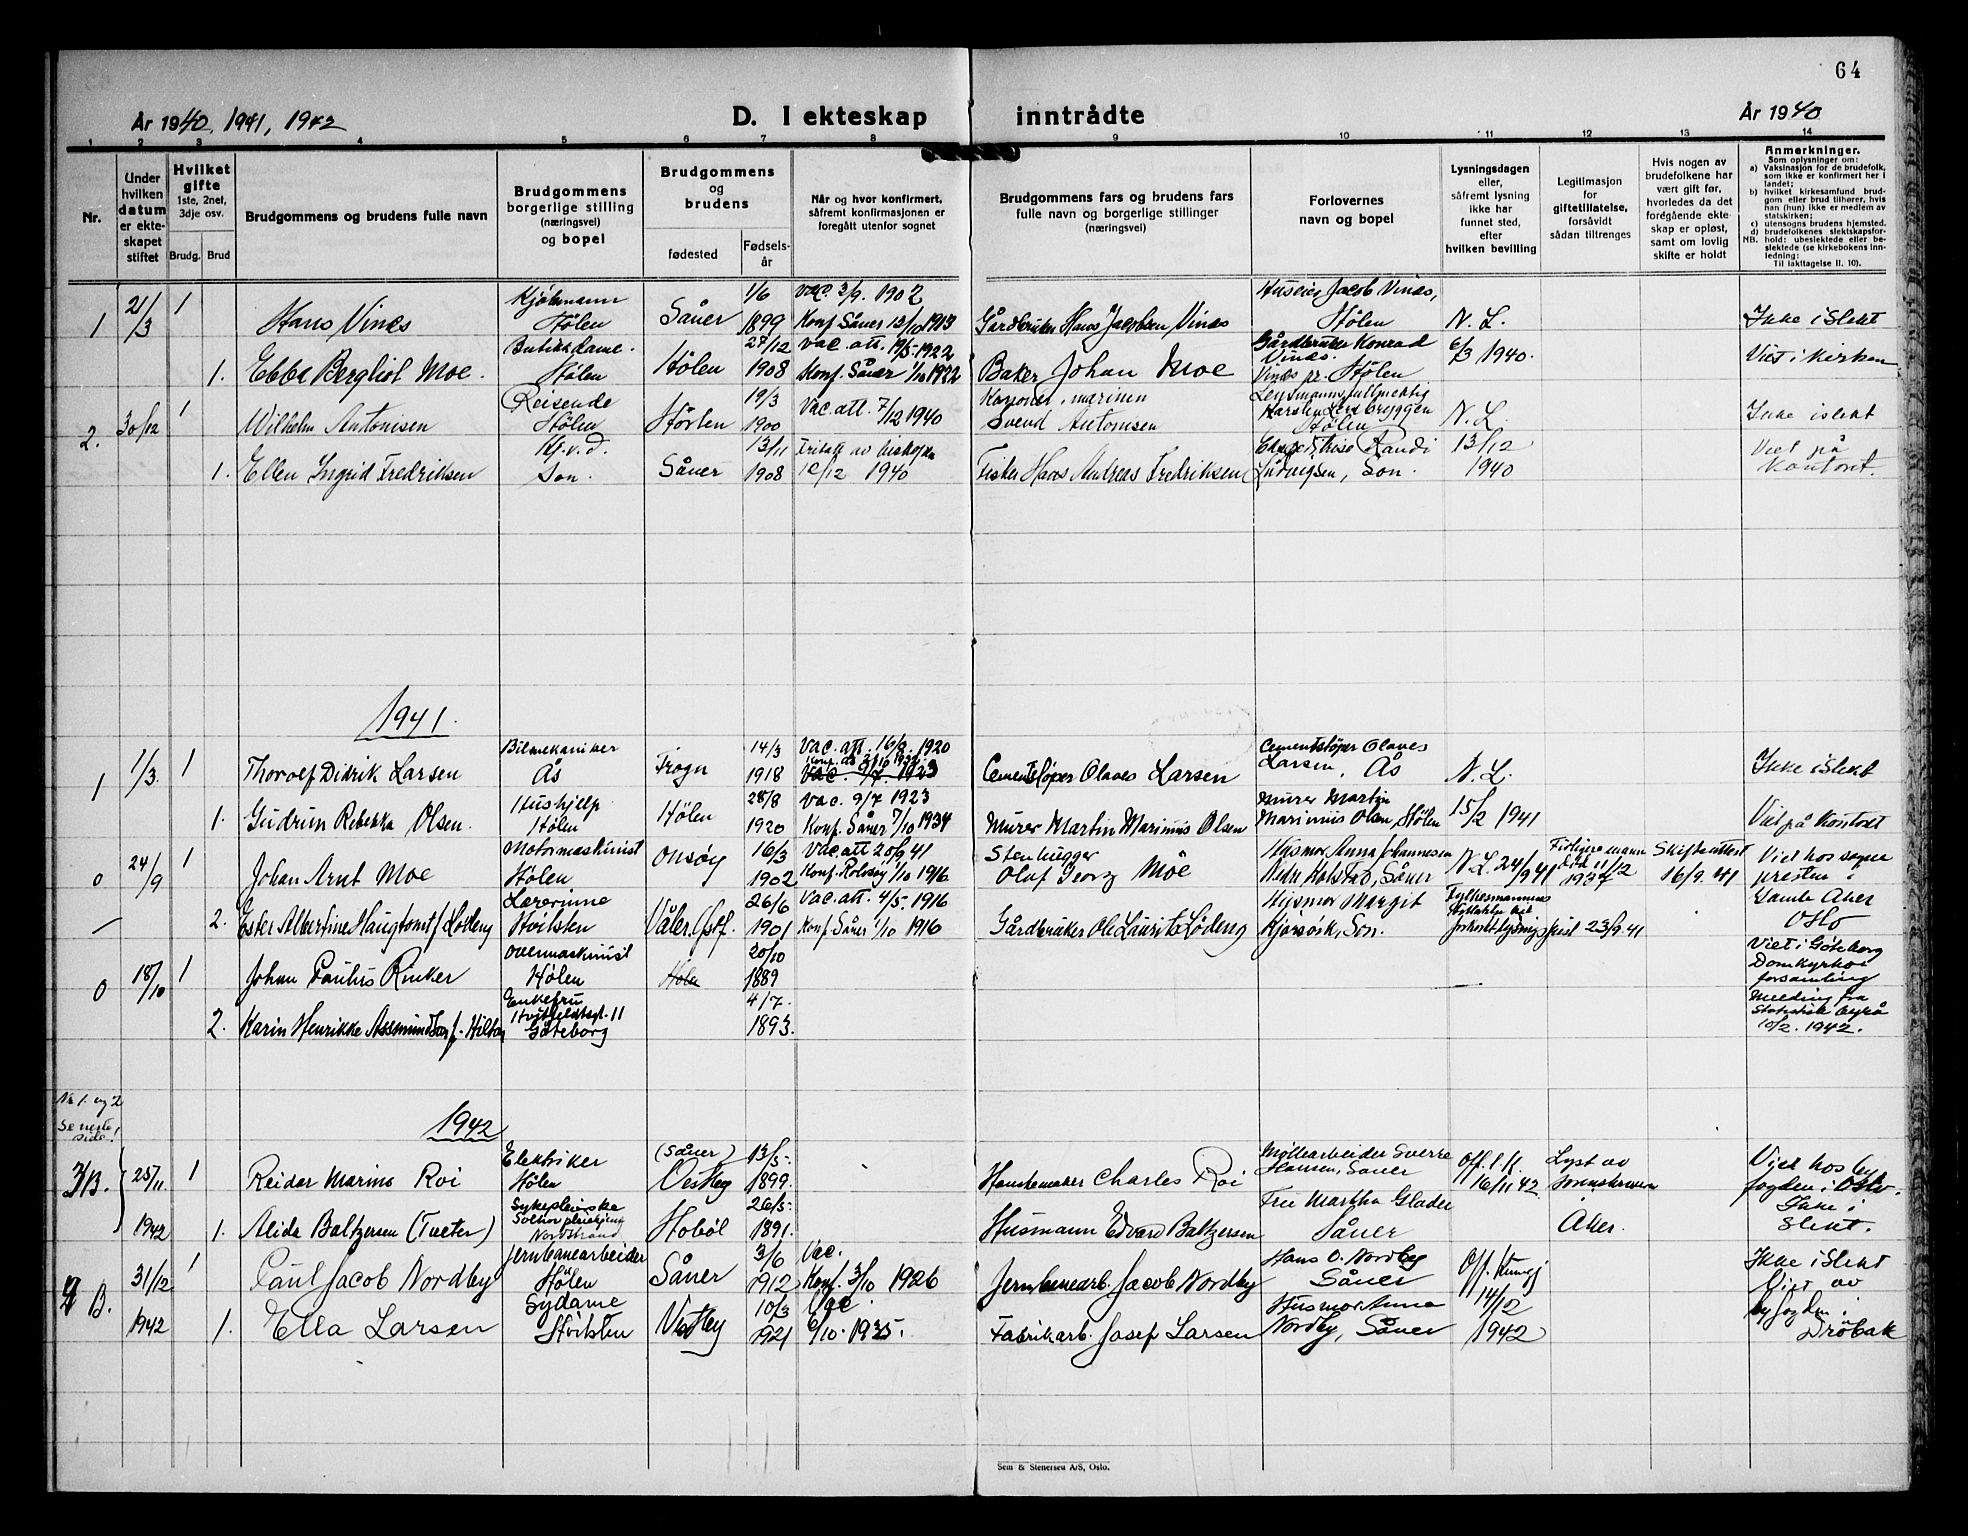 64
År 1940, 1941, 1942 D. I ekteskap inntrådte År 1940
1 2 3 4 5 6 7 8 9 10 11 12 13 14
Nr.
Under hvilken datum er ekteskapet stiftet
Hvilket gifte 1ste, 2net, 3dje osv.
Brudg. Brud
Brudgommens og brudens fulle navn
Brudgommens borgerlige stilling (næringsvei) og bopel
Brudgommens og brudens
fødested
Fødselsår
Når og hvor konfirmert, såfremt konfirmasjonen er foregått utenfor sognet
Brudgommens fars og brudens fars fulle navn og borgerlige stillinger (næringsvei)
Forlovernes navn og bopel
Lysningsdagen eller, såfremt lysning ikke har funnet sted, efter hvilken bevilling
Legitimasjon for giftetillatelse, forsåvidt sådan tiltrenges
Hvis nogen av brudefolkene har vært gift før, hvorledes da det foregående ekteskap er opløst, samt om lovlig skifte er holdt
Anmerkninger.
Som oplysninger om:
a) Vaksinasjon for de brudefolk, som ikke er konfirmert her i landet;
b) hvilket kirkesamfund brudgom eller brud tilhører, hvis han (hun) ikke er medlem av statskirken;
c) utensogns brudens hjemsted.
d) brudefolkenes slektskapsforhold: ubeslektede eller beslektede (se kirkebokens innledning:
NB. Til iakttagelse II. 10).
1 21/3 1 Hans Vines Kjøbmann Hølen Såner 1/6 1899 Vac. 2/9. 1902 Konf. Såner 12/10 1913 Gårdbruker Hans Jacobsen Vines Huseier Jacob Vines, Hølen N. L. Ikke i slekt
1. Ebba Bergliot Moe. Butikkdame. Hølen Hølen 27/12 1908 Vac. att. 19/5. 1922 Konf. Såner 1/10 1922 Baker Johan Moe Gårdbruker Konrad Vines. Vines pr. Hølen 6/3 1940. Viet i kirken
2. 30/12 1 Wilhelm Antonisen Reisende Hølen Horten 19/3 1900 Vac. att. 7/12 1940 Svend Antonisen Lensmannsfullmektig Karsten Hølen N. L. Ikke i slekt
1. Ellen Ingrid Fredriksen Hj.v.d. Son. Såner 13/11 1908 Fritatt av biskopen 12/12 1940 Fisker Hans Andreas Fredriksen Randi Ludvigsen, Son. 13/12 1940 Viet på kontoret.
1941.
1 1/3. 1 Thorolf Didrik Larsen Bilmekaniker Ås Frogn 14/3 1918 Vac. att. 16/9. 1920 Vac. 9/7. 1923 Cementstøper Olaves Larsen Cementstøper Olaves Larsen, Ås N. L. Ikke i slekt
1. Gudrun Rebekka Olsen. Hushjelp Hølen Hølen 28/8 1920 Vac. 9/7 1923 Konf. Såner 7/10 1934 Murer Martin Marinius Olsen Murer Martin Marinius Olsen, Hølen 15/2 1941 Viet på kontoret
0 24/9 1 Johan Arnt Moe Motormaskinist Hølen Onsøy 16/3 1902 Vac. att 20/9 41 Konf. Rolvsøy 1/10 1916 Stenhugger Olaf Georg Moe Husmor Anna Johannesen Såner N. L. 24/9 41 11/12 1937 Skifteattest 16/9. 41 Viet hos sognepresten i Gamle Aker Oslo
2. Ester Albertine Haugtomt f. Lødeng Lærerinne Hvitsten Våler, Østf. 26/6 1901 Vac. att. 4/5. 1916 Konf. Såner 1/10 1916 Gårdbruker Ole Laurits Lødeng Husmor Margit Son. Fylkesmannens 23/9. 41
0 18/10 1 Johan Paulus Rinker Overmaskinist Hølen Hølen 20/10 1889 Viet i Göteborg Domkyrko forsamling
2. Karin Henrikke Assmundson f. Enkefru 11 Göteborg 4/7. 1893. Melding fra Statistisk byrå 10/2. 1942.
Nr 1. og 2 se neste side!
1942
3B. 25/11 1 Reidar Marius Roi Elektriker Hølen (Såner) Vestby 13/5. 1899. Charles Roi Møllearbeider Sverre Hansen, Såner Off. l. k. 16/11 42 Lyst av sorenskriveren i Viet hos byfogden i Oslo.
1942 1. Alida Baltzersen (Tveter) Sykepleierske Nordstrand Hobøl 26/5- 1891. Husmann Edvard Baltzersen Fru Martha Glader Såner Aker. Ikke i slekt.
B. 31/12 1 Paul Jacob Nordby Jernbanearbeider Hølen Såner 3/6 1912 Vac. Konf. 3/10 1926 Jernbanearb. Jacob Nordby Hans O. Nordby Såner Off. Kunngj 14/12 Ikke i slekt
1942 1. Ella Larsen Sydame Hvitsten Vestby 10/3 1921 Vac. 6/10. 1935. Fabrikarb. Josef Larsen Husmor Anna Nordby, Såner 1942 Gift av byfogden i Drøbak
Sem & Stenersen A/S, Oslo.